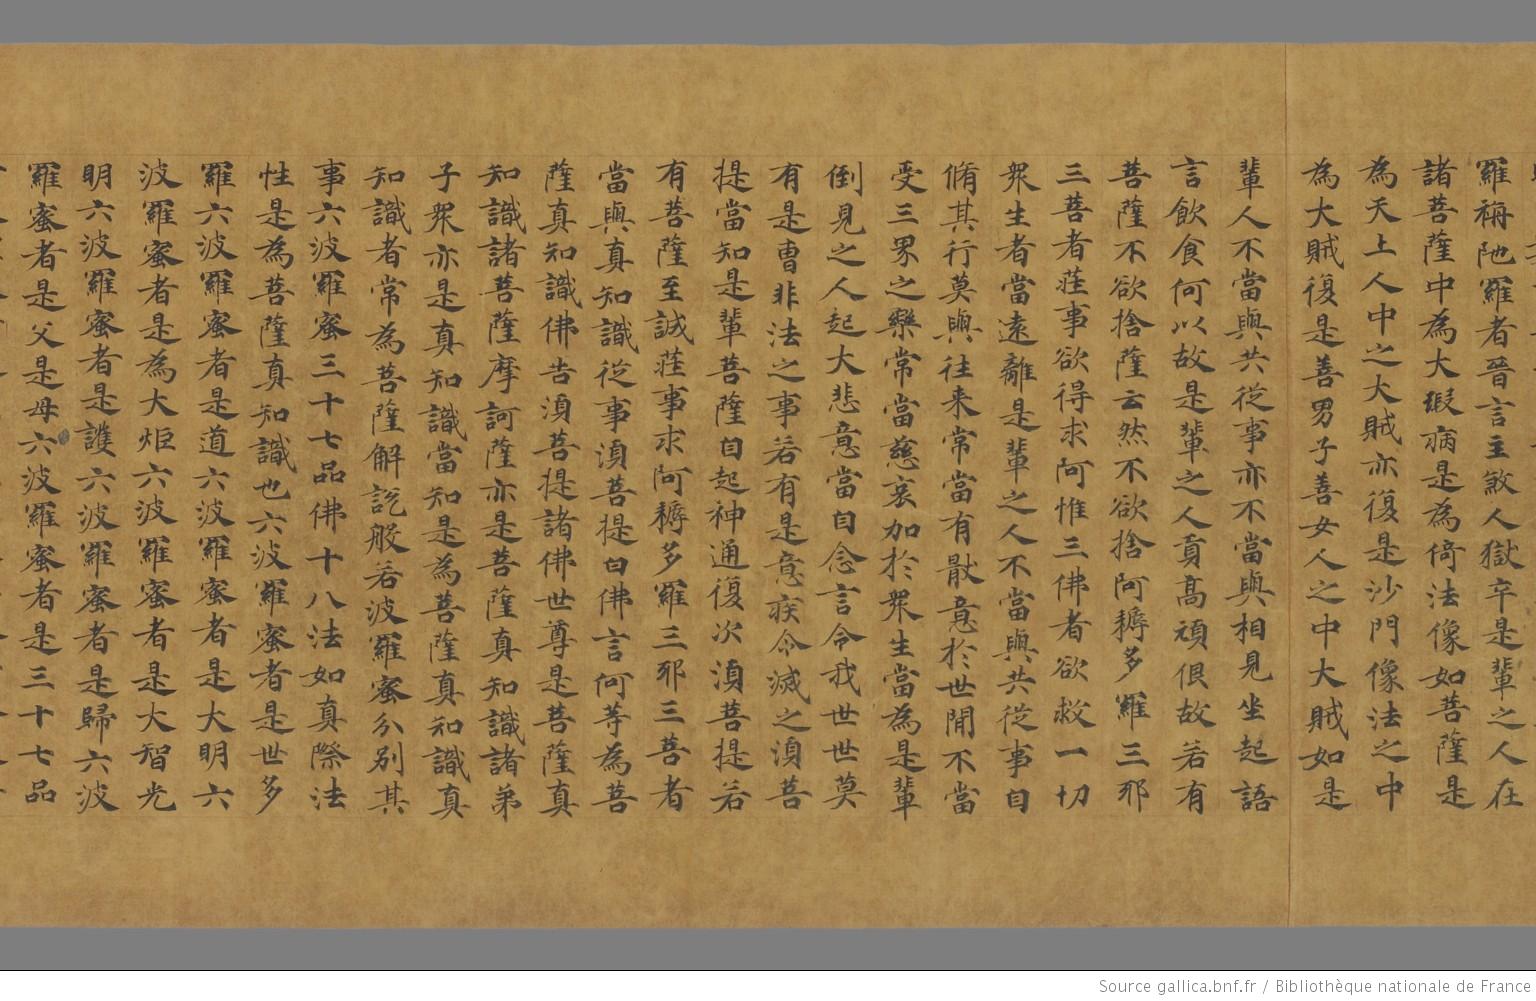 羅旃陁羅者晉言主敘人獄卒是輩之人在
諸菩薩中為大瑕病是為倚法像如菩薩是
為天上人中之大賊亦復是沙門像法之中
為大賊復是善男子善女人之中大賊如是
輩人不當與共從事亦不當與相見坐起語
言飲食何以故是輩之人貢高頑佷故若有
菩薩不欲捨薩云然不欲捨阿耨多羅三耶
三菩者莊事欲得求阿惟三佛者欲救一切
眾生者當遠離是輩之人不當與共從事自
脩其行莫與往来常當有猒意於世閒不當
受三界之樂常當慈哀加於眾生當為是輩
倒見之人起大悲意當自念言令我世世莫
有是曹非法之事若有是意疾令滅之湏菩
提當知是輩菩薩自起神通復次湏菩提若
有菩薩至誠莊事求阿耨多羅三耶三菩者
當與真知識從事湏菩提白佛言何等為菩
薩真知識佛告湏菩提諸佛世尊是菩薩真
知識諸菩薩摩訶薩亦是菩薩真知識諸弟
子眾亦是真知識當知是為菩薩真知識真
知識者常為菩薩解説般若波羅蜜分別其
事六波羅蜜三十七品佛十八法如真際法
性是為菩薩真知識也六波羅蜜者是世多
羅六波羅蜜者是道六波羅蜜者是大明六
波羅蜜者是為大炬六波羅蜜者是大智光
明六波羅蜜者是護六波羅蜜者是歸六波
羅蜜者是父是母六波羅蜜者是三十七品
Source gallica.bnf.fr / Bibliothèque nationale de France